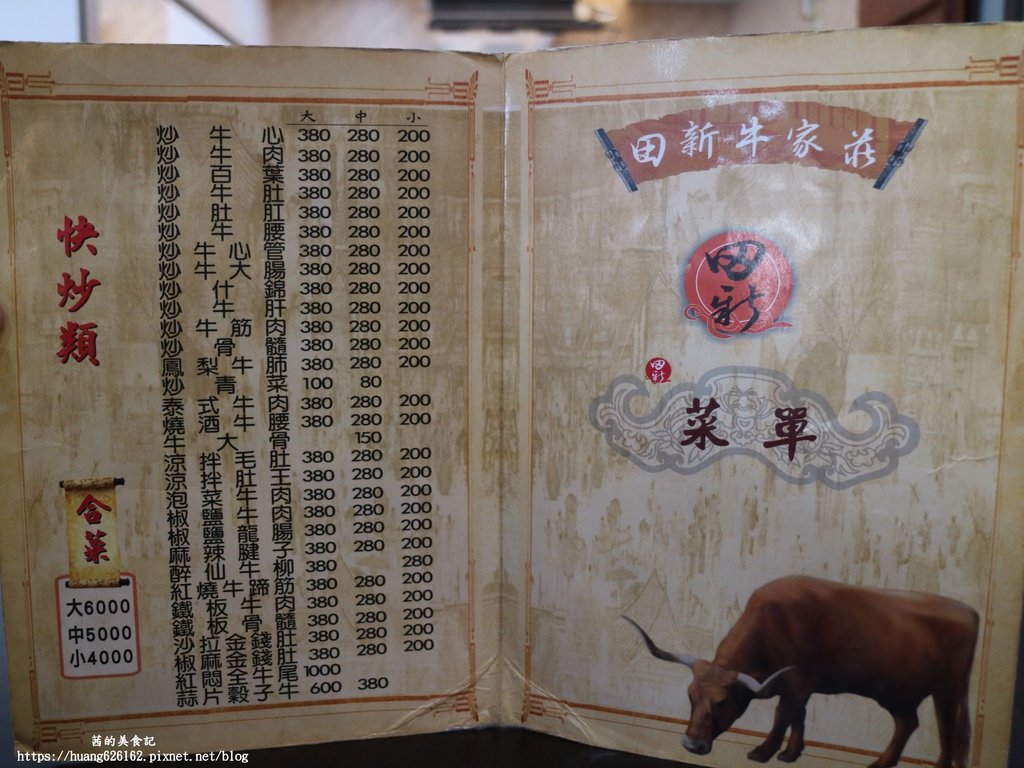 大 中 小
炒牛心 380 280 200
炒牛肉 380 280 200
炒百葉 380 280 200
炒牛肚 380 280 200
炒肚肛 380 280 200
炒牛腰 380 280 200
炒牛心管 380 280 200
炒牛大腸 380 280 200
炒什錦 380 280 200
炒牛肝 380 280 200
炒牛筋肉 380 280 200
炒骨髓 380 280 200
鳳梨牛肺 380 280 200
炒青菜 100 80
泰式牛肉 380 280 200
燒酒牛腰 380 280 200
牛大骨 150
涼拌毛肚 380 280 200
涼拌肚王 380 280 200
泡菜牛肉 380 280 200
椒鹽牛肉 380 280 200
椒鹽龍腸 380 280 200
麻辣腱子 380 280 200
醉仙牛柳 380 280
紅燒牛蹄筋 380 280 200
鐵板牛肉 380 280 200
鐵板骨髓 380 280 200
沙拉金錢肚 380 280 200
椒麻金錢肚 380 280 200
紅悶全牛尾 1000
蒜片穀子牛 600 380
快炒類
合菜
大6000
中5000
小4000
田新牛家莊
田新
田新
菜單
茜的美食記
https://huang626162.pixnet.net/blog